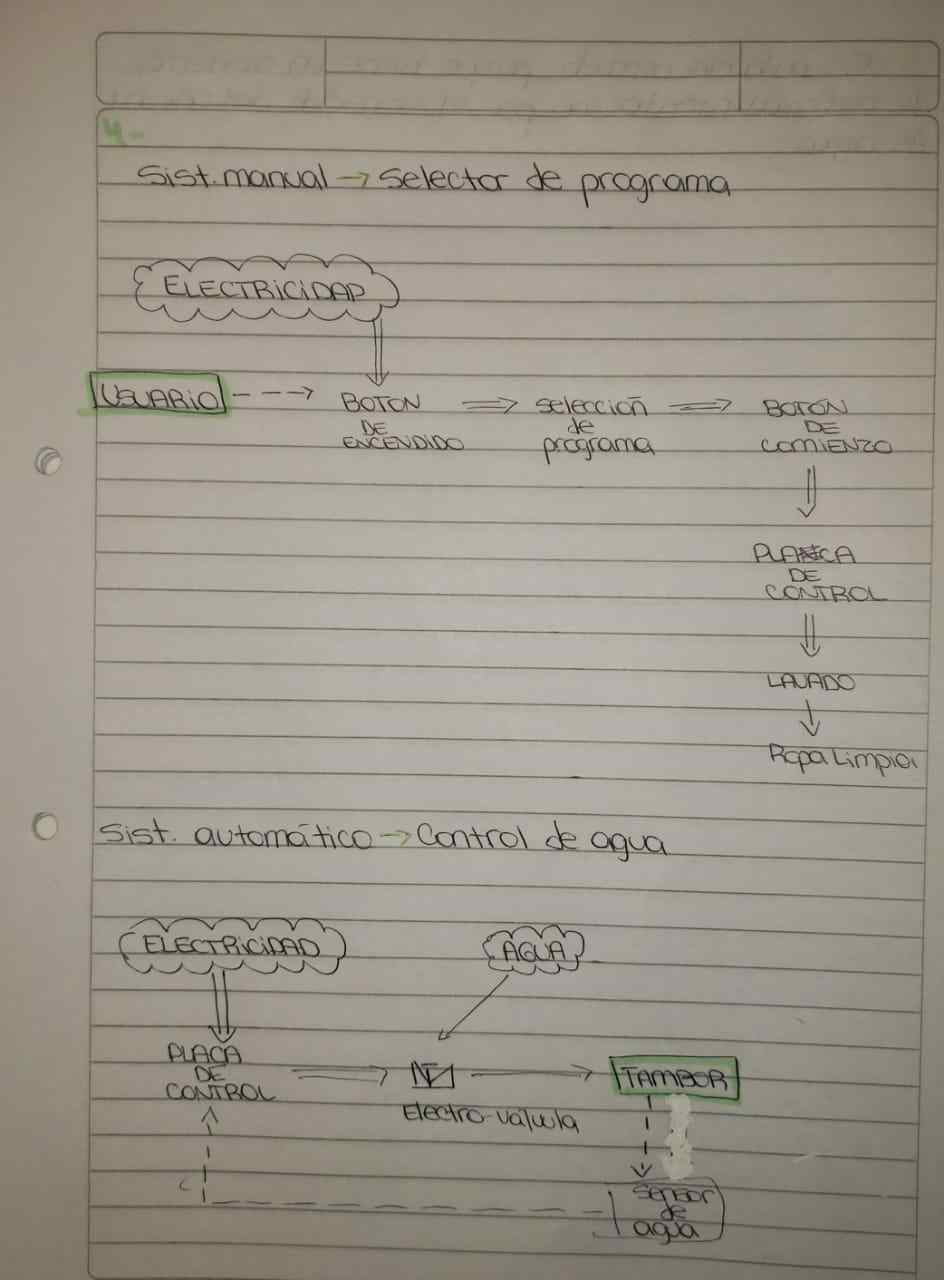 4-
Sist. manual → Selector de programa
ELECTRICIDAD
USUARIO
BOTON
DE
ENCENDIDO
selección
de
programa
BOTÓN
DE
COMIENZO
PLACA
DE
CONTROL
LAVADO
Ropa Limpia
Sist. automático → Control de agua
ELECTRICIDAD
AGUA
PLACA
DE
CONTROL
Electro-válvula
TAMBOR
sensor
de
agua